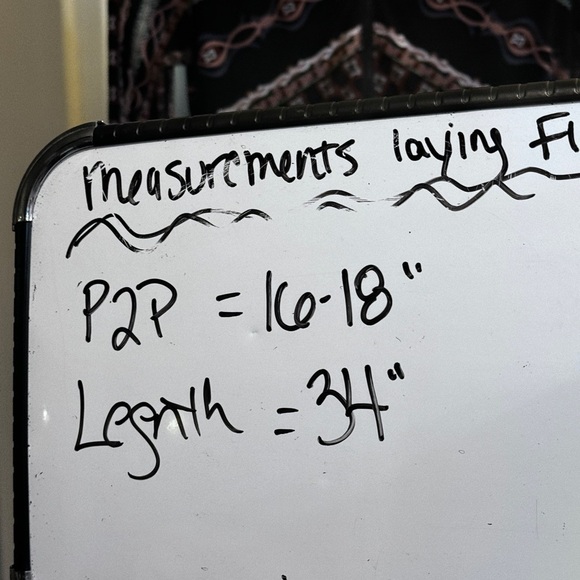 measurements laying Fl
P2P = 16-18"
Legnth = 34"